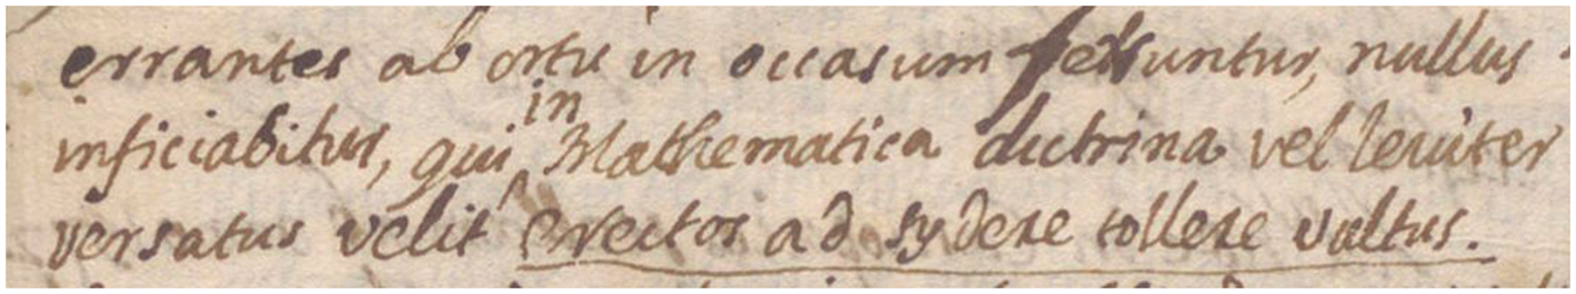 errantes ab ortu in occasum feruntur, nullus
inficiabitur, qui in Mathematica doctrina vel leuiter
versatus velit erectos ad sydere tollere vultus.